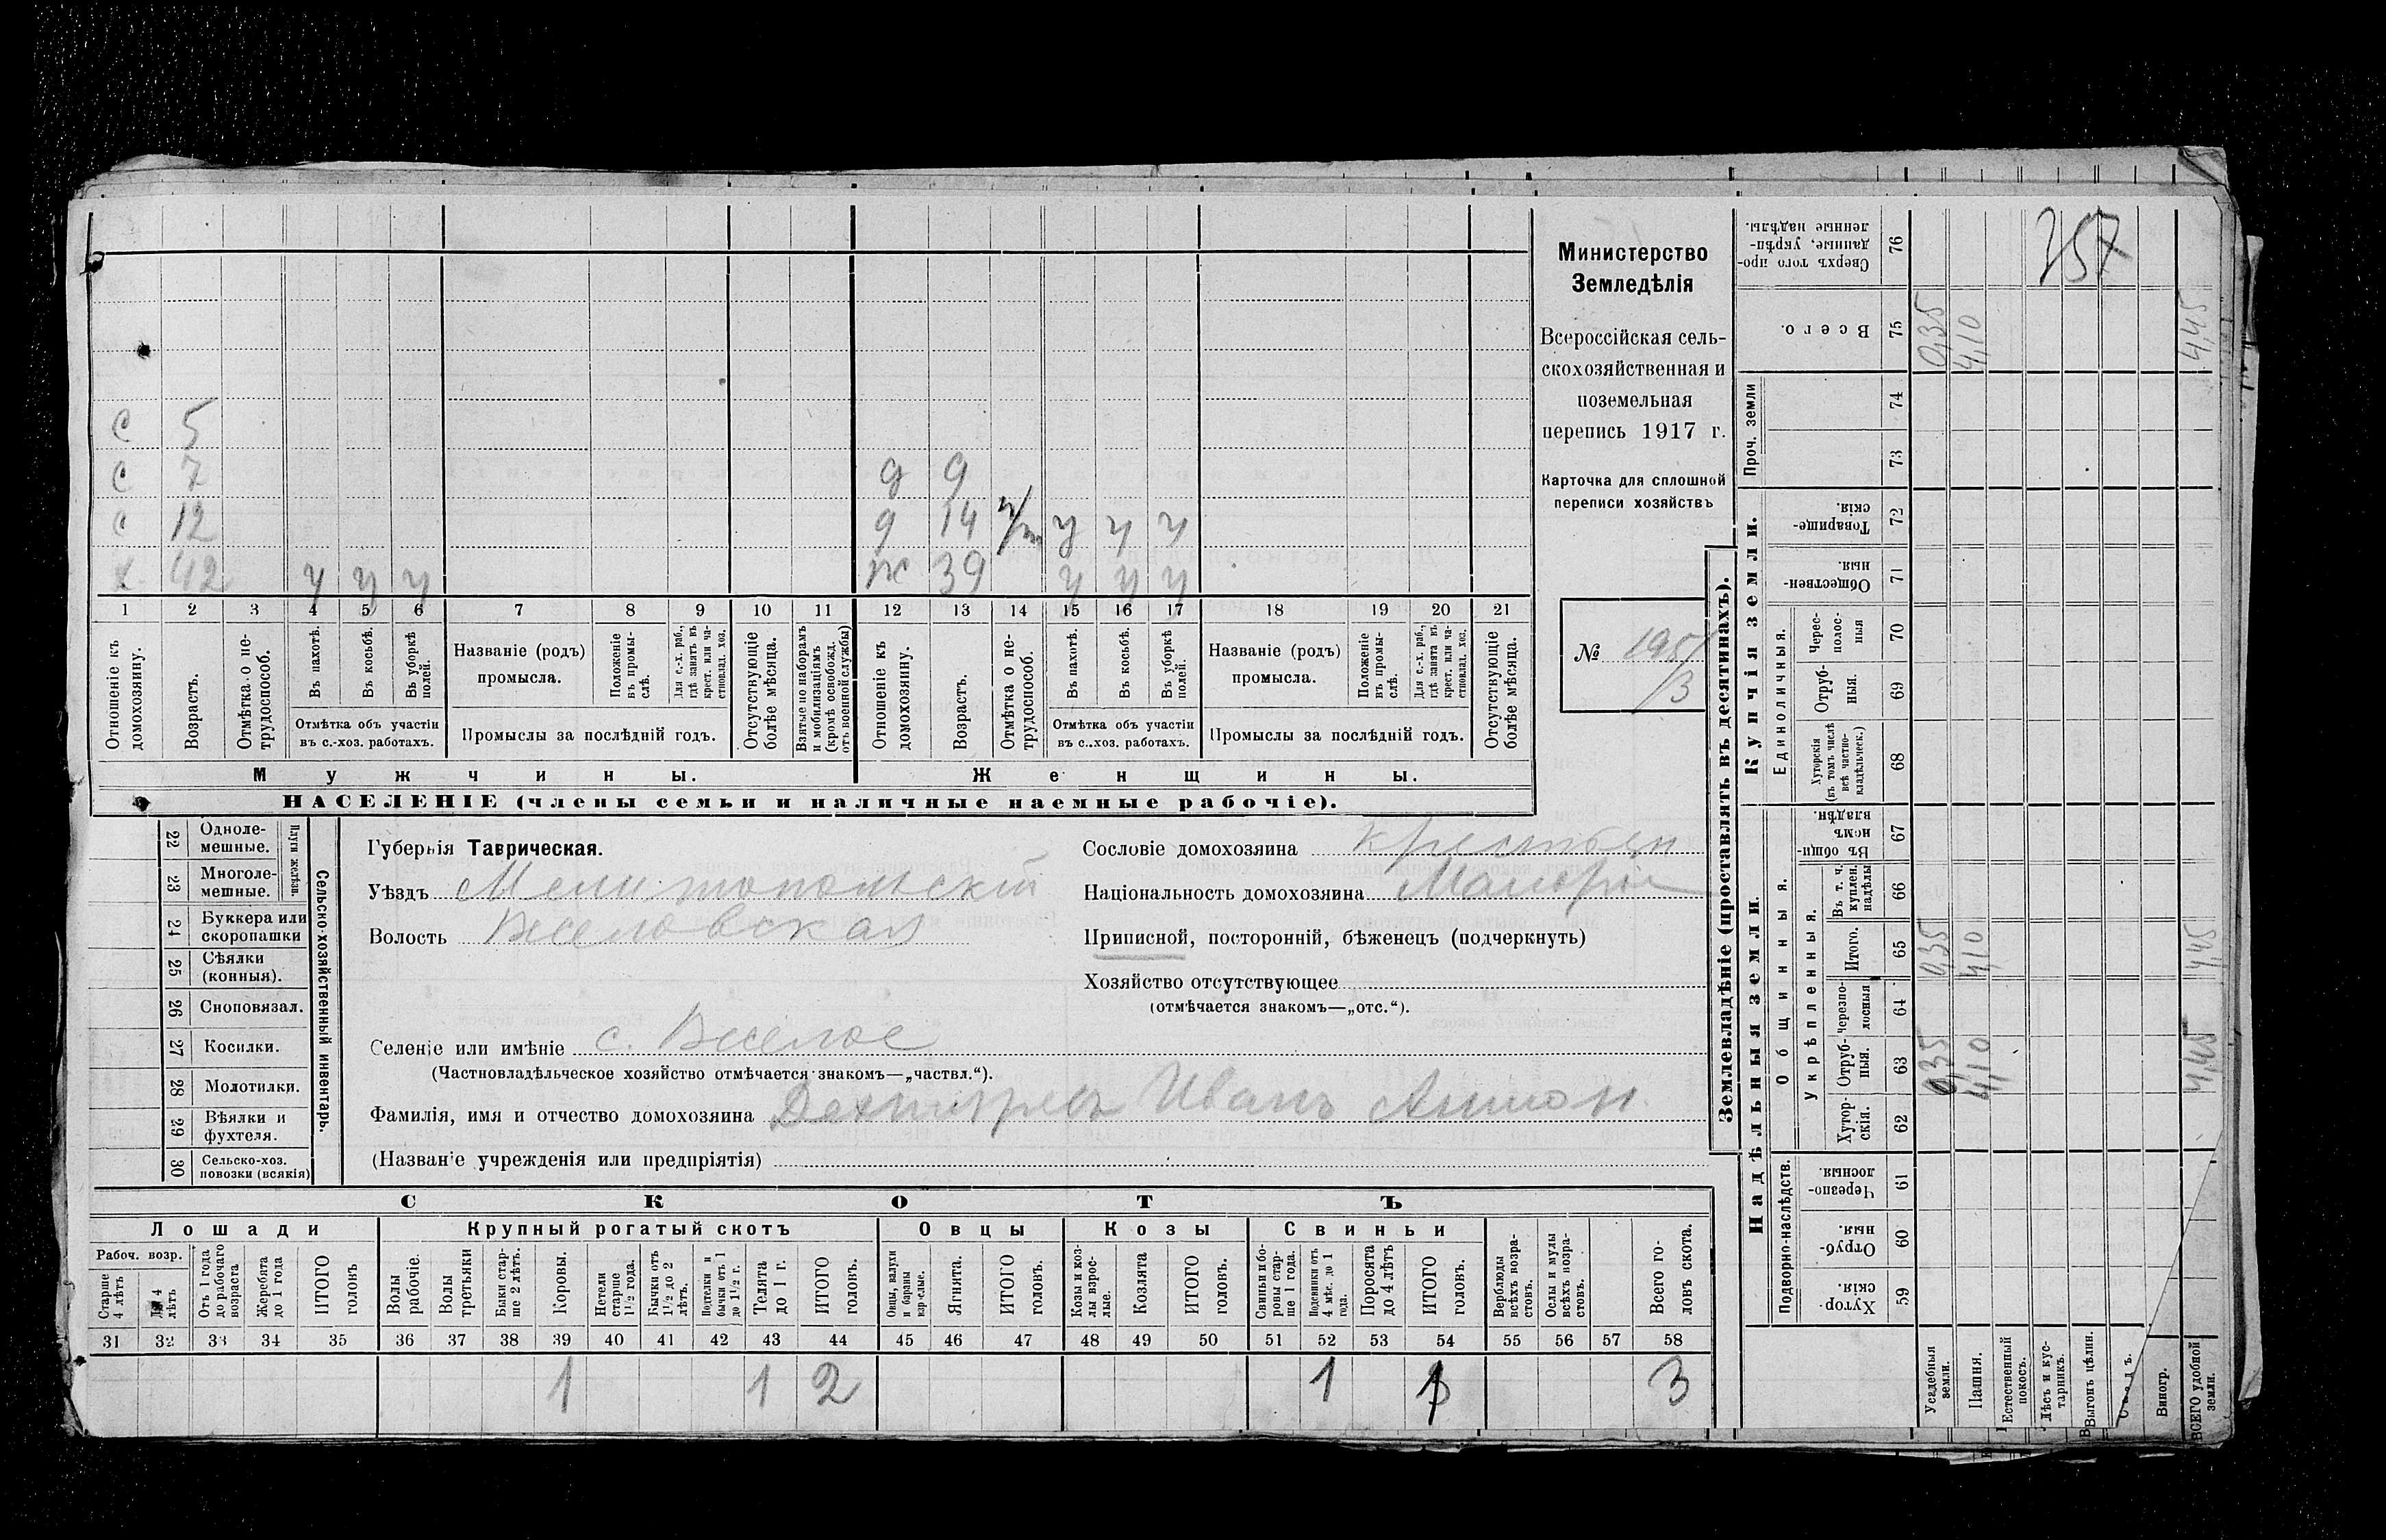 357
Министерство
Земледѣлія
Всероссійская сель-
скохозяйственная и
поземельная
перепись 1917 г.
Карточка для сплошной
переписи хозяйствъ
№ 195/3
с 5
с 7 д 9
с 12 д 14 н/т у у у
х 42 у у у ж 39 у у у
1 2 3 4 5 6 7 8 9 10 11 12 13 14 15 16 17 18 19 20 21
Отношеніе къ домохозяину.
Возрастъ.
Отмѣтка о не-трудоспособ.
Въ пахотѣ.
Въ косьбѣ.
Въ уборкѣ полей.
Отмѣтка объ участіи
въ с.-хоз. работахъ.
Названіе (родъ)
промысла.
Положеніе въ промы-слѣ.
Для с.-х. раб., гдѣ занятъ въ крест. или ча-стновлад. хоз.
Промыслы за послѣдній годъ.
Отсутствующіе болѣе мѣсяца.
Взятые по наборамъ и мобилизаціямъ (кромѣ освобожд. отъ военной службы)
Отношеніе къ домохозяину.
Возрастъ.
Отмѣтка о не-трудоспособ.
Въ пахотѣ.
Въ косьбѣ.
Въ уборкѣ полей.
Отмѣтка объ участіи
въ с..хоз. работахъ.
Названіе (родъ)
промысла.
Положеніе въ промы-слѣ.
Для с.-х. раб., гдѣ занята въ крест. или ча-стновлад. хоз.
Промыслы за послѣдній годъ.
Отсутствующіе болѣе мѣсяца.
Мужчины. Женщины.
НАСЕЛЕНІЕ (члены семьи и наличные наемные рабочіе).
22 Одноле-мешные.
23 Многоле-мешные.
Плуги желѣзн.
24 Буккера или скоропашки
25 Сѣялки (конныя).
26 Сноповязал.
27 Косилки.
28 Молотилки.
29 Вѣялки и фухтеля.
30 Сельско-хоз. повозки (всякія)
Сельско-хозяйственный инвентарь.
Губернія Таврическая.
Уѣздъ Мелитопольскій
Волость Веселовская
Селеніе или имѣніе с. Веселое
(Частновладѣльческое хозяйство отмѣчается знакомъ—„частвл.“).
Фамилія, имя и отчество домохозяина Иванъ Антон.
(Названіе учрежденія или предпріятія)
Сословіе домохозяина крестьян
Національность домохозяина Малорос
Приписной, посторонній, бѣженецъ (подчеркнуть)
Хозяйство отсутствующее
(отмѣчается знакомъ—„отс.“).
СКОТЪ
Лошади Крупный рогатый скотъ Овцы Козы Свиньи
Рабоч. возр.
Старше 4 лѣтъ
До 4 лѣтъ
Отъ 1 года до рабочаго возраста
Жеребята до 1 года
ИТОГО головъ
Волы рабочіе.
Волы третьяки
Быки стар-ше 2 лѣтъ.
Коровы.
Нетели старше 1 1/2 года.
Бычки отъ 1 1/2 до 2 лѣтъ.
Подтелки и бычки отъ 1 до 1 1/2 г.
Телята до 1 г.
ИТОГО головъ.
Овцы, валухи и бараны взрослые.
Ягнята.
ИТОГО головъ.
Козы и коз-лы взрос-лые.
Козлята
ИТОГО головъ.
Свиньи и бо-ровы стар-ше 1 года.
Подсвинки отъ 4 мѣс. до 1 года.
Поросята до 4 лѣтъ
ИТОГО головъ.
Верблюды всѣхъ возра-стовъ.
Ослы и мулы всѣхъ возра-стовъ.
Всего го-ловъ скота.
31 32 33 34 35 36 37 38 39 40 41 42 43 44 45 46 47 48 49 50 51 52 53 54 55 56 57 58
1 1 2 1 1 3
Землевладѣніе (проставлять въ десятинахъ).
Надѣльныя земли. Купчія земли.
Подворно-наслѣдств.
Общинныя.
Укрѣпленныя.
Единоличныя.
Проч. земли
Хутор-скія. 59
Отруб-ныя. 60
Черезпо-лосныя. 61
Хутор-скія. 62
Отруб-ныя. 63
Черезпо-лосныя 64
Итого. 65
Въ т. ч. куплен. надѣлы 66
Въ общи-нномъ владѣн. 67
Хуторскія (въ томъ числѣ всѣ частно-владѣльческ.) 68
Отруб-ныя. 69
Черес-полос-ныя 70
Обществен-ныя. 71
Товарище-скія. 72
73
74
Всего. 75
Сверхъ того про-данные, укрѣп-ленные надѣлы. 76
Усадебныя земли. 0,35 0,35 0,35
Пашня. 4,10 4,10 4,10
Естественный покосъ.
Лѣсъ и кус-тарникъ.
Выгонъ цѣлин.
Садъ.
Виногр.
ВСЕГО удобной земли. 4,45 4,45 4,45